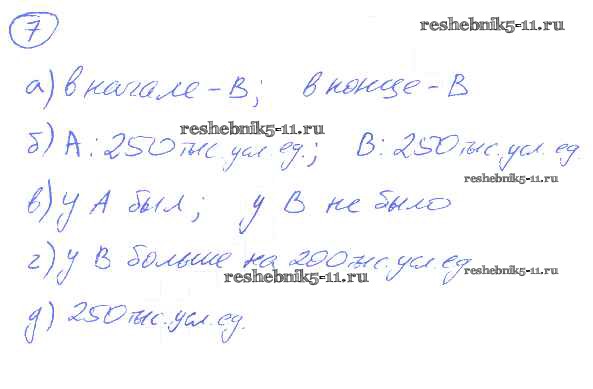 7 reshebnik5-11.ru
а) в начале - В; в конце - В
reshebnik5-11.ru
б) А: 250 тыс. усл. ед.; В: 250 тыс. усл. ед.
reshebnik5-11.ru
в) у А был; у В не было
г) у В больше на 200 тыс. усл. ед
reshebnik5-11.ru reshebnik5-11.ru
д) 250 тыс. усл. ед.